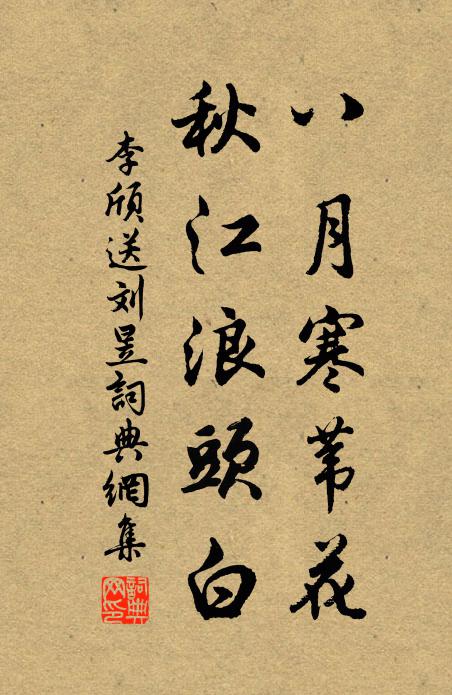 八月寒苇花
秋江浪頭白
李頎送刘昱詞典網集
詞典网印